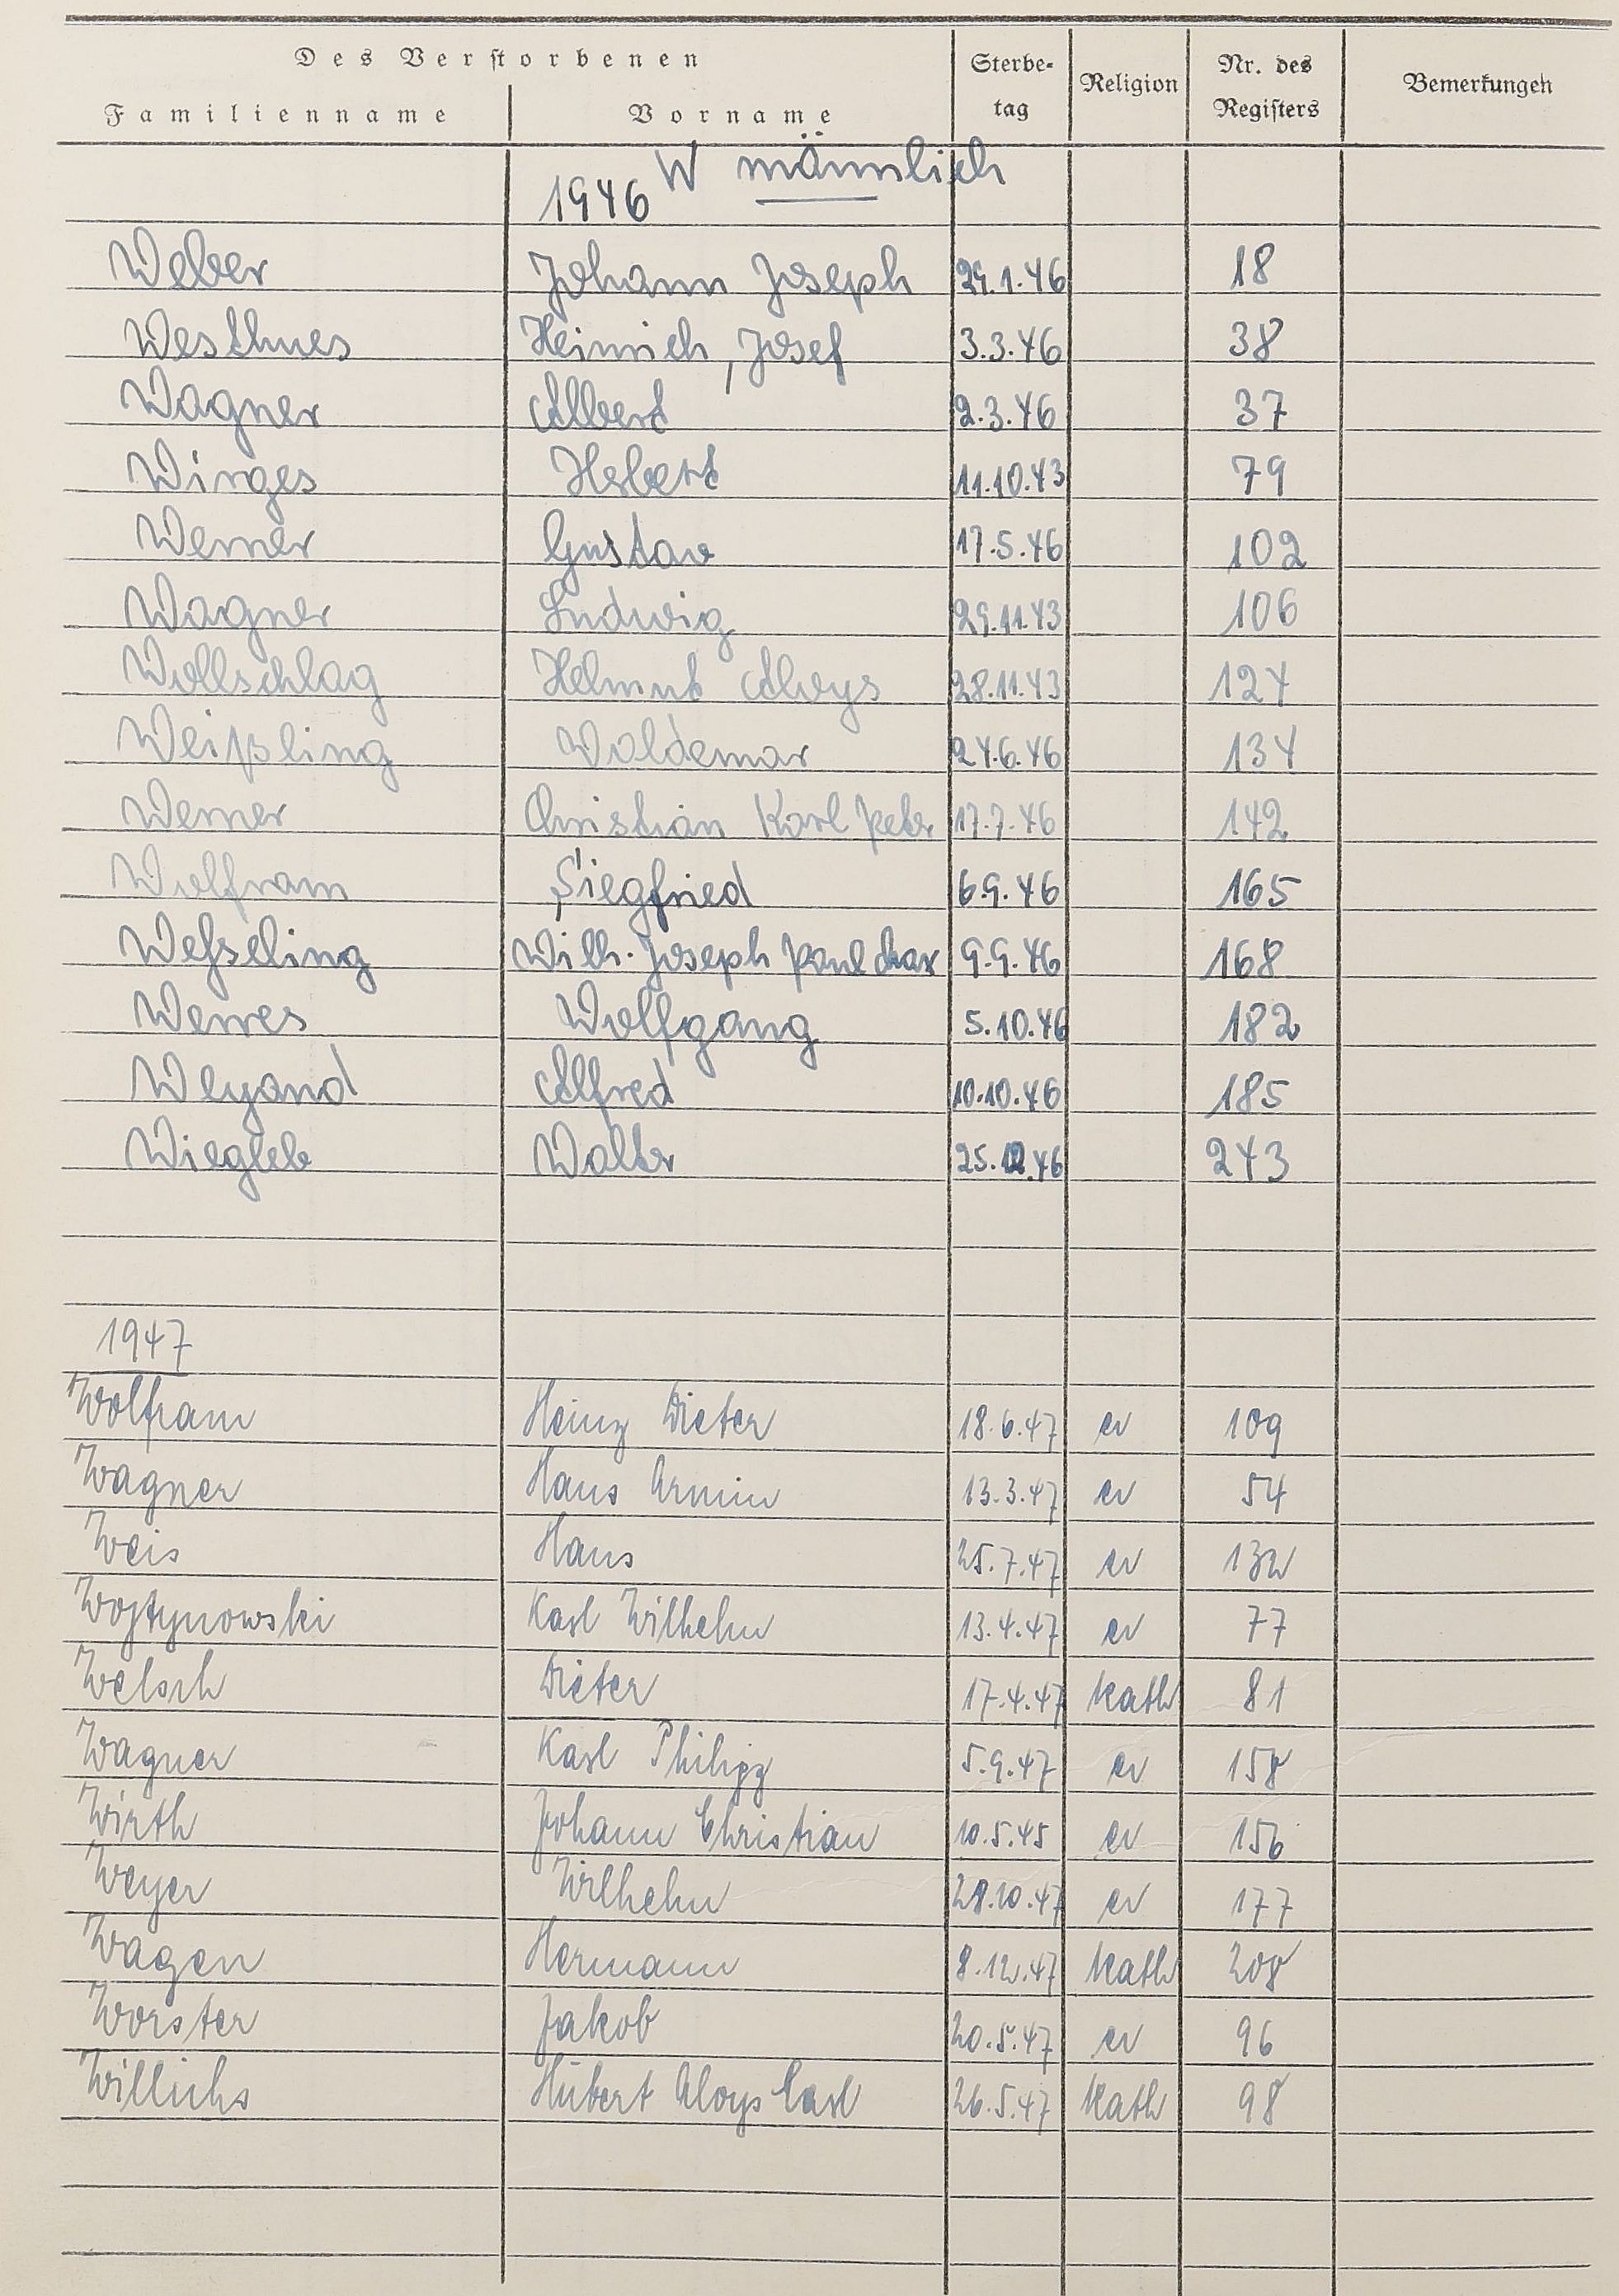 Des Verstorbenen
Familienname Vorname Sterbe-tag Religion Nr. des Registers Bemerkungen
W männlich
1946
Weber Johann Joseph 29.1.46 18
Westhues Heinrich, Josef 3.3.46 38
Wagner Albert 2.3.46 37
Wirges Herbert 11.10.43 79
Werner Gustav 17.5.46 102
Wagner Ludwig 29.11.43 106
Wollschlag Helmut Aloys 28.11.43 124
Weißling Woldemar 24.6.46 134
Werner Christian Karl Peter 17.7.46 142
Wolfram Siegfried 6.9.46 165
Weßeling Wilh. Joseph Paul 9.9.46 168
Werres Wolfgang 5.10.46 182
Weyand Alfred 10.10.46 185
Wiegleb Walter 25.12.46 243
1947
Wolfram Heinz Dieter 18.6.47 ev 109
Wagner Hans Armin 13.3.47 ev 54
Weis Hans 25.7.47 ev 132
Wojtynowski Karl Wilhelm 13.4.47 ev 77
Welsch Dieter 17.4.47 kath 81
Wagner Karl Philipp 5.9.47 ev 158
Wirth Johann Christian 10.5.45 ev 156
Weyer Wilhelm 28.10.47 ev 177
Wagen Hermann 8.12.47 kath 208
Worster Jakob 20.5.47 ev 96
Willichs Hubert Aloys Carl 26.5.47 kath 98